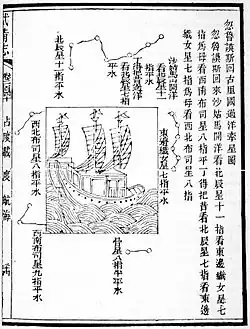 忽魯謨斯回古里國過洋牽星圖
忽魯謨斯回來沙姑馬開洋看北辰星十一指看東邊織女星七
指爲母看西南布司星八指平丁得把昔看北辰星七指看東邊
織女星七指爲母看西北布司星八指
沙姑馬山開洋
看北辰星十四指
平水
丁得把昔過洋
看北辰星七指
平水
北辰星十一指平水
東邊織女星七指平水
西北布司星八指平水
骨星八指半平水
西南布司星九指平水
武備志
占度載
度
航海